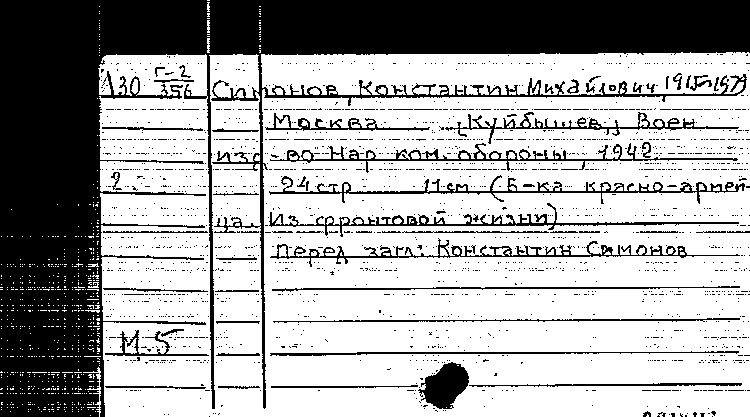 А30 Г-2/356 Симонов, Константин Михайлович, 1915-1979
Москва [Куйбышев,] Воен.
изд-во Нар. ком. обороны, 1942.
2. 24 стр. 11 см. (Б-ка красно-армей-
ца. Из фронтовой жизни)
Перед загл: Константин Симонов
М.5